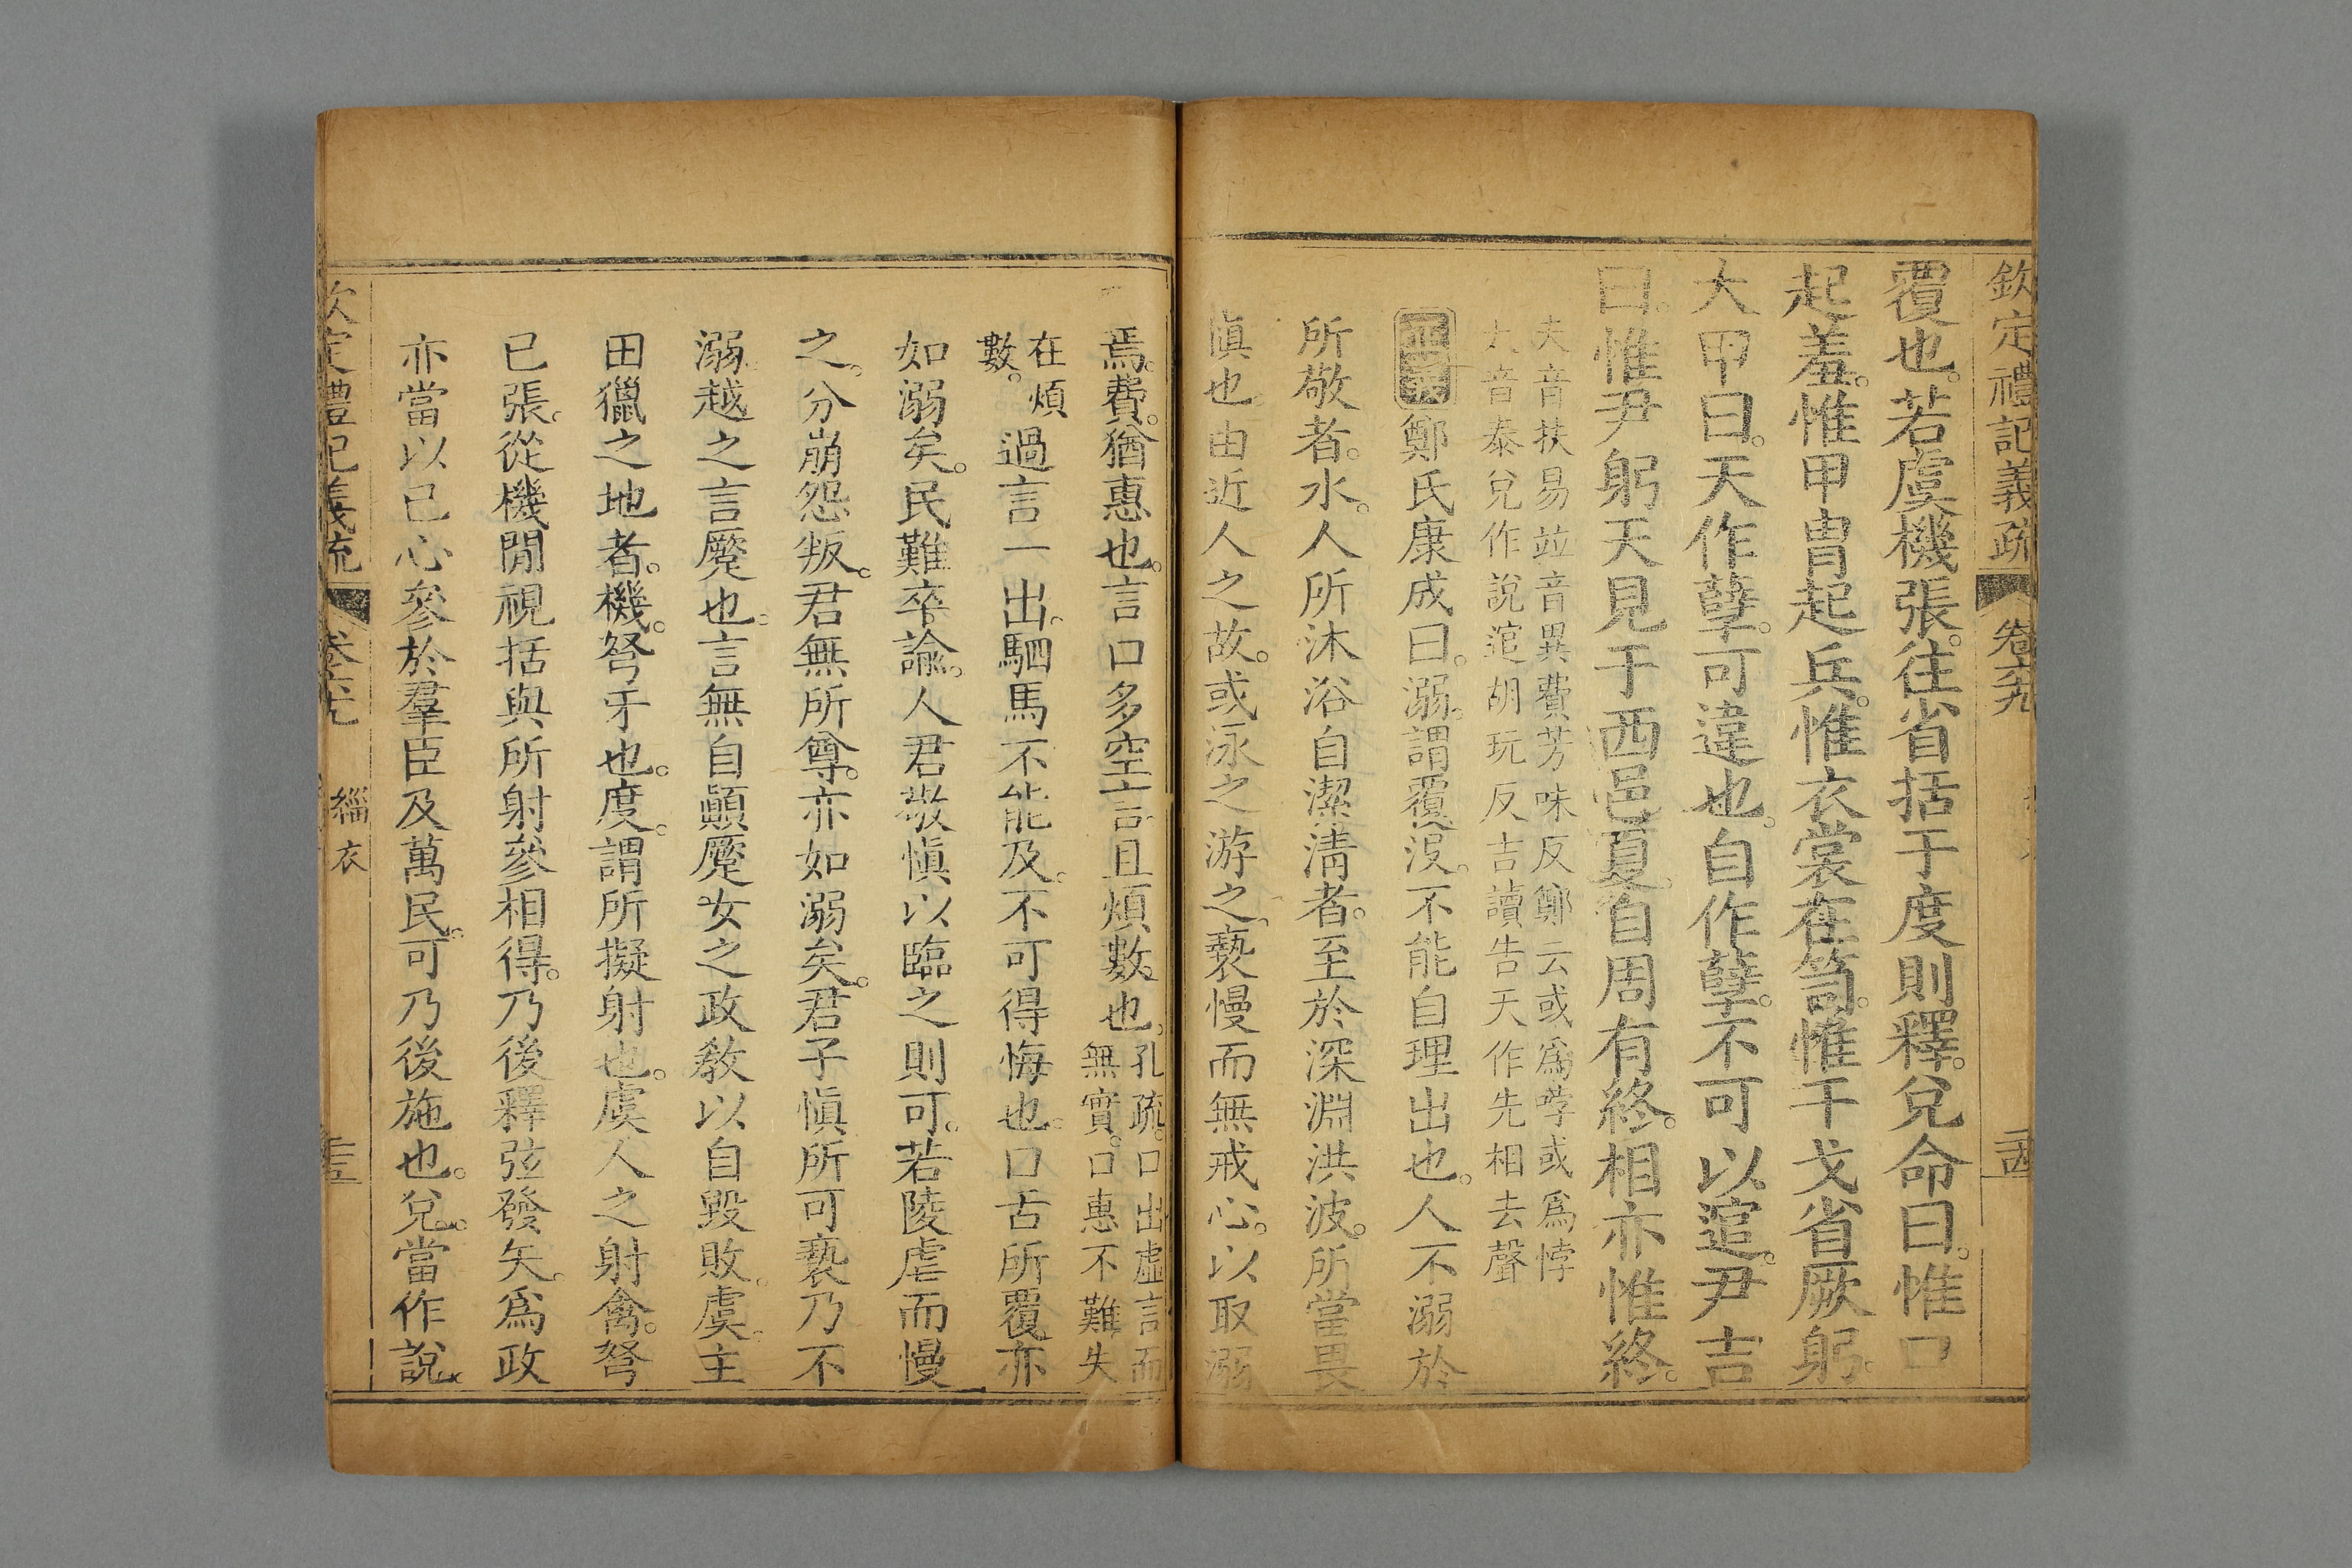 欽定禮記義疏 卷六九
覆也。若虞機張。往省括于度則釋。兌命曰。惟口
起羞。惟甲冑起兵。惟衣裳在笥。惟干戈省厥躬。
大甲曰。天作孽。可違也。自作孽。不可以逭。尹吉
曰。惟尹躬天見于西邑夏。自周有終。相亦惟終。
夫音扶易竝音異費芳味反鄭云或爲哱或爲悖
大音泰兌作說逭胡玩反吉讀告天作先相去聲
正義 鄭氏康成曰。溺。謂覆没。不能自理出也。人不溺於
所敬者。水。人所沐浴自潔清者。至於深淵洪波。所當畏
愼也。由近人之故。或泳之游之。褻慢而無戒心。以取溺
焉。費。猶惠也。言口多空言。且煩數也。孔疏。口出虛言而
無實。口惠不難。失
在煩
數。過言一出。駟馬不能及。不可得悔也。口舌所覆。亦
如溺矣。民難卒諭。人君敬愼以臨之則可。若陵虐而慢
之。分崩怨叛。君無所尊。亦如溺矣。君子愼所可褻。乃不
溺。越之言蹷也。言無自顚蹷女之政敎以自毀敗。虞。主
田獵之地者。機。弩牙也。度。謂所擬射也。虞人之射禽。弩
已張。從機閒視括。與所射參相得。乃後釋弦發矢。爲政
亦當以己心參於羣臣及萬民。可乃後施也。兌。當作說。
欽定禮記義疏 卷六九 緇衣